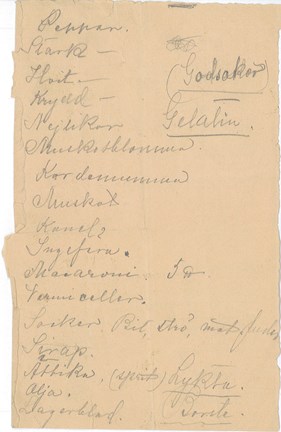 Peppar.
Stark —
Hvit —
Krydd —
Nejlikor
Muskotblomma
Kardemumma
Muskot
Kanel
Ingefera.
Macaroni. 5 ℔
Vermiceller.
Socker. Bit, strö,
Sirap.
Ättika. (sprit)
Olja.
Lagerblad.
(Godsaker)
Gelatin.
Lykta.